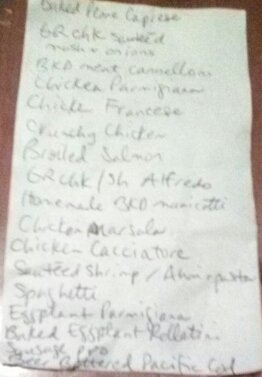 Baked Penne Caprese
GRchk Sauteéd
mushr onions
BKD meat Cannelloni
Chicken Parmigiana
Chicken Francese
Crunchy Chicken
Broiled Salmon
GRchk/Sh Alfredo
Homemade BKD manicotti
Chicken Marsala
Chicken Cacciatore
Sautéed Shrimp /
Spaghetti
Eggplant Parmigiana
Baked Eggplant Rollatini
Sausage
Beer Battered Pacific Cod